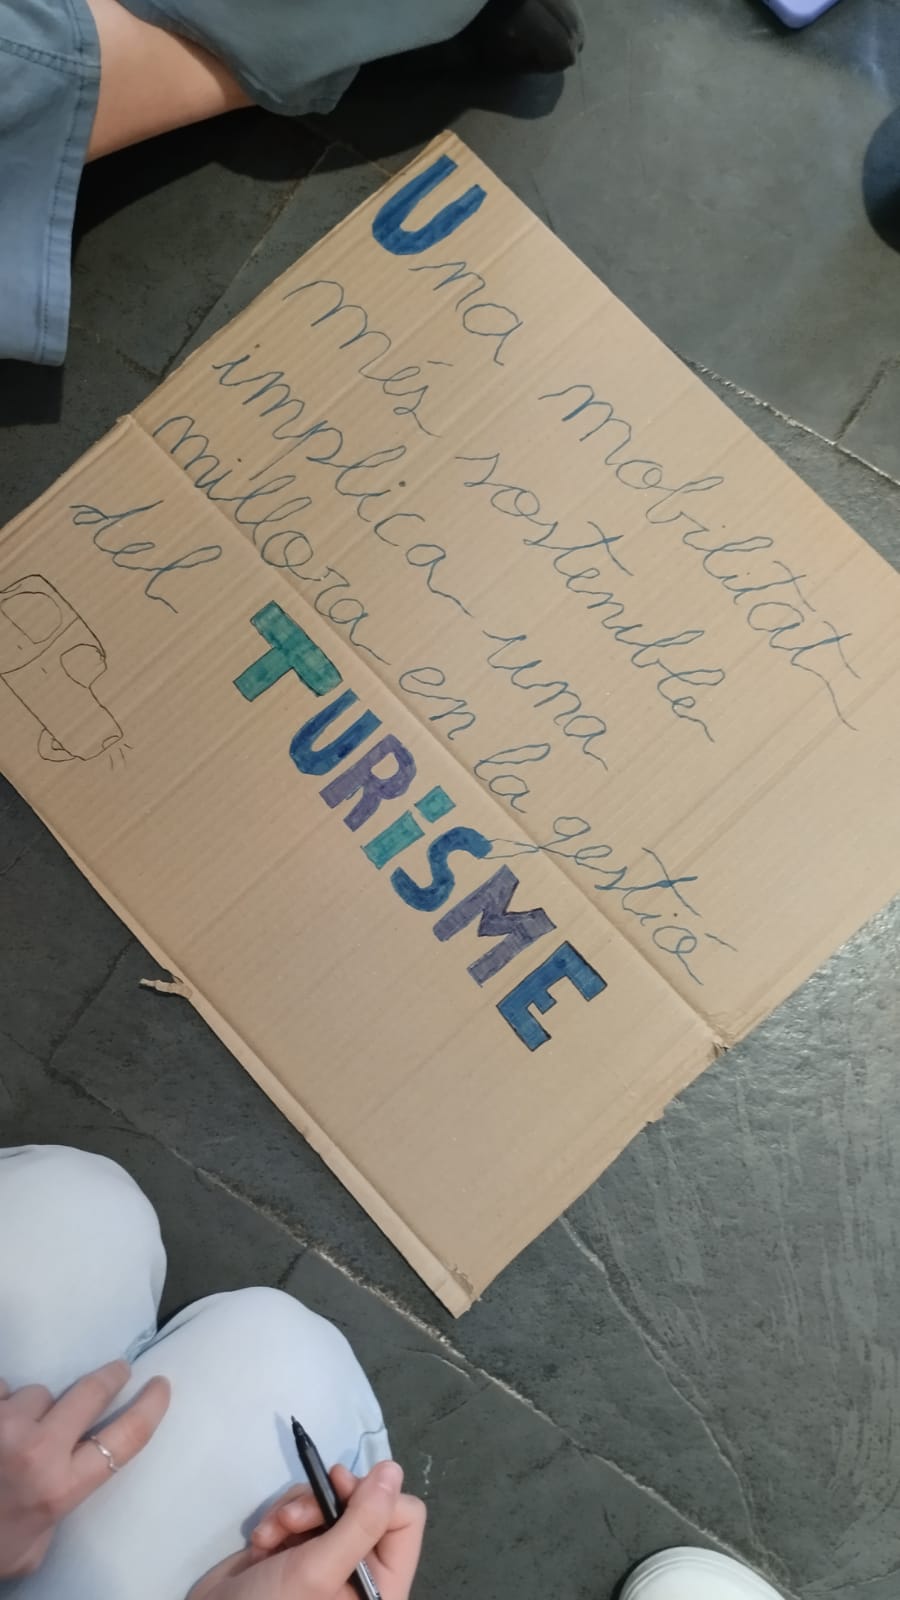 Una mobilitat
més sostenible
implica una
millora en la gestió
del TURiSME